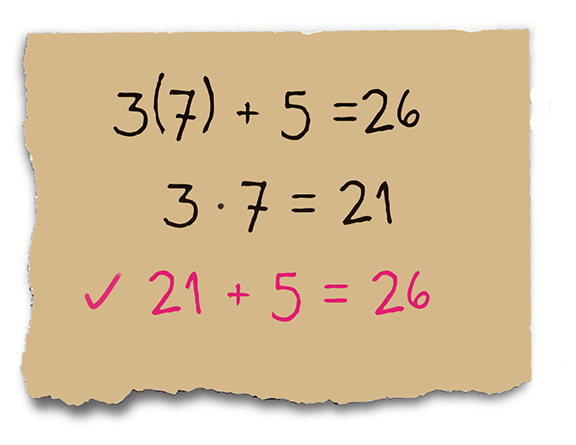 3(7) + 5 = 26
3 · 7 = 21
✓ 21 + 5 = 26